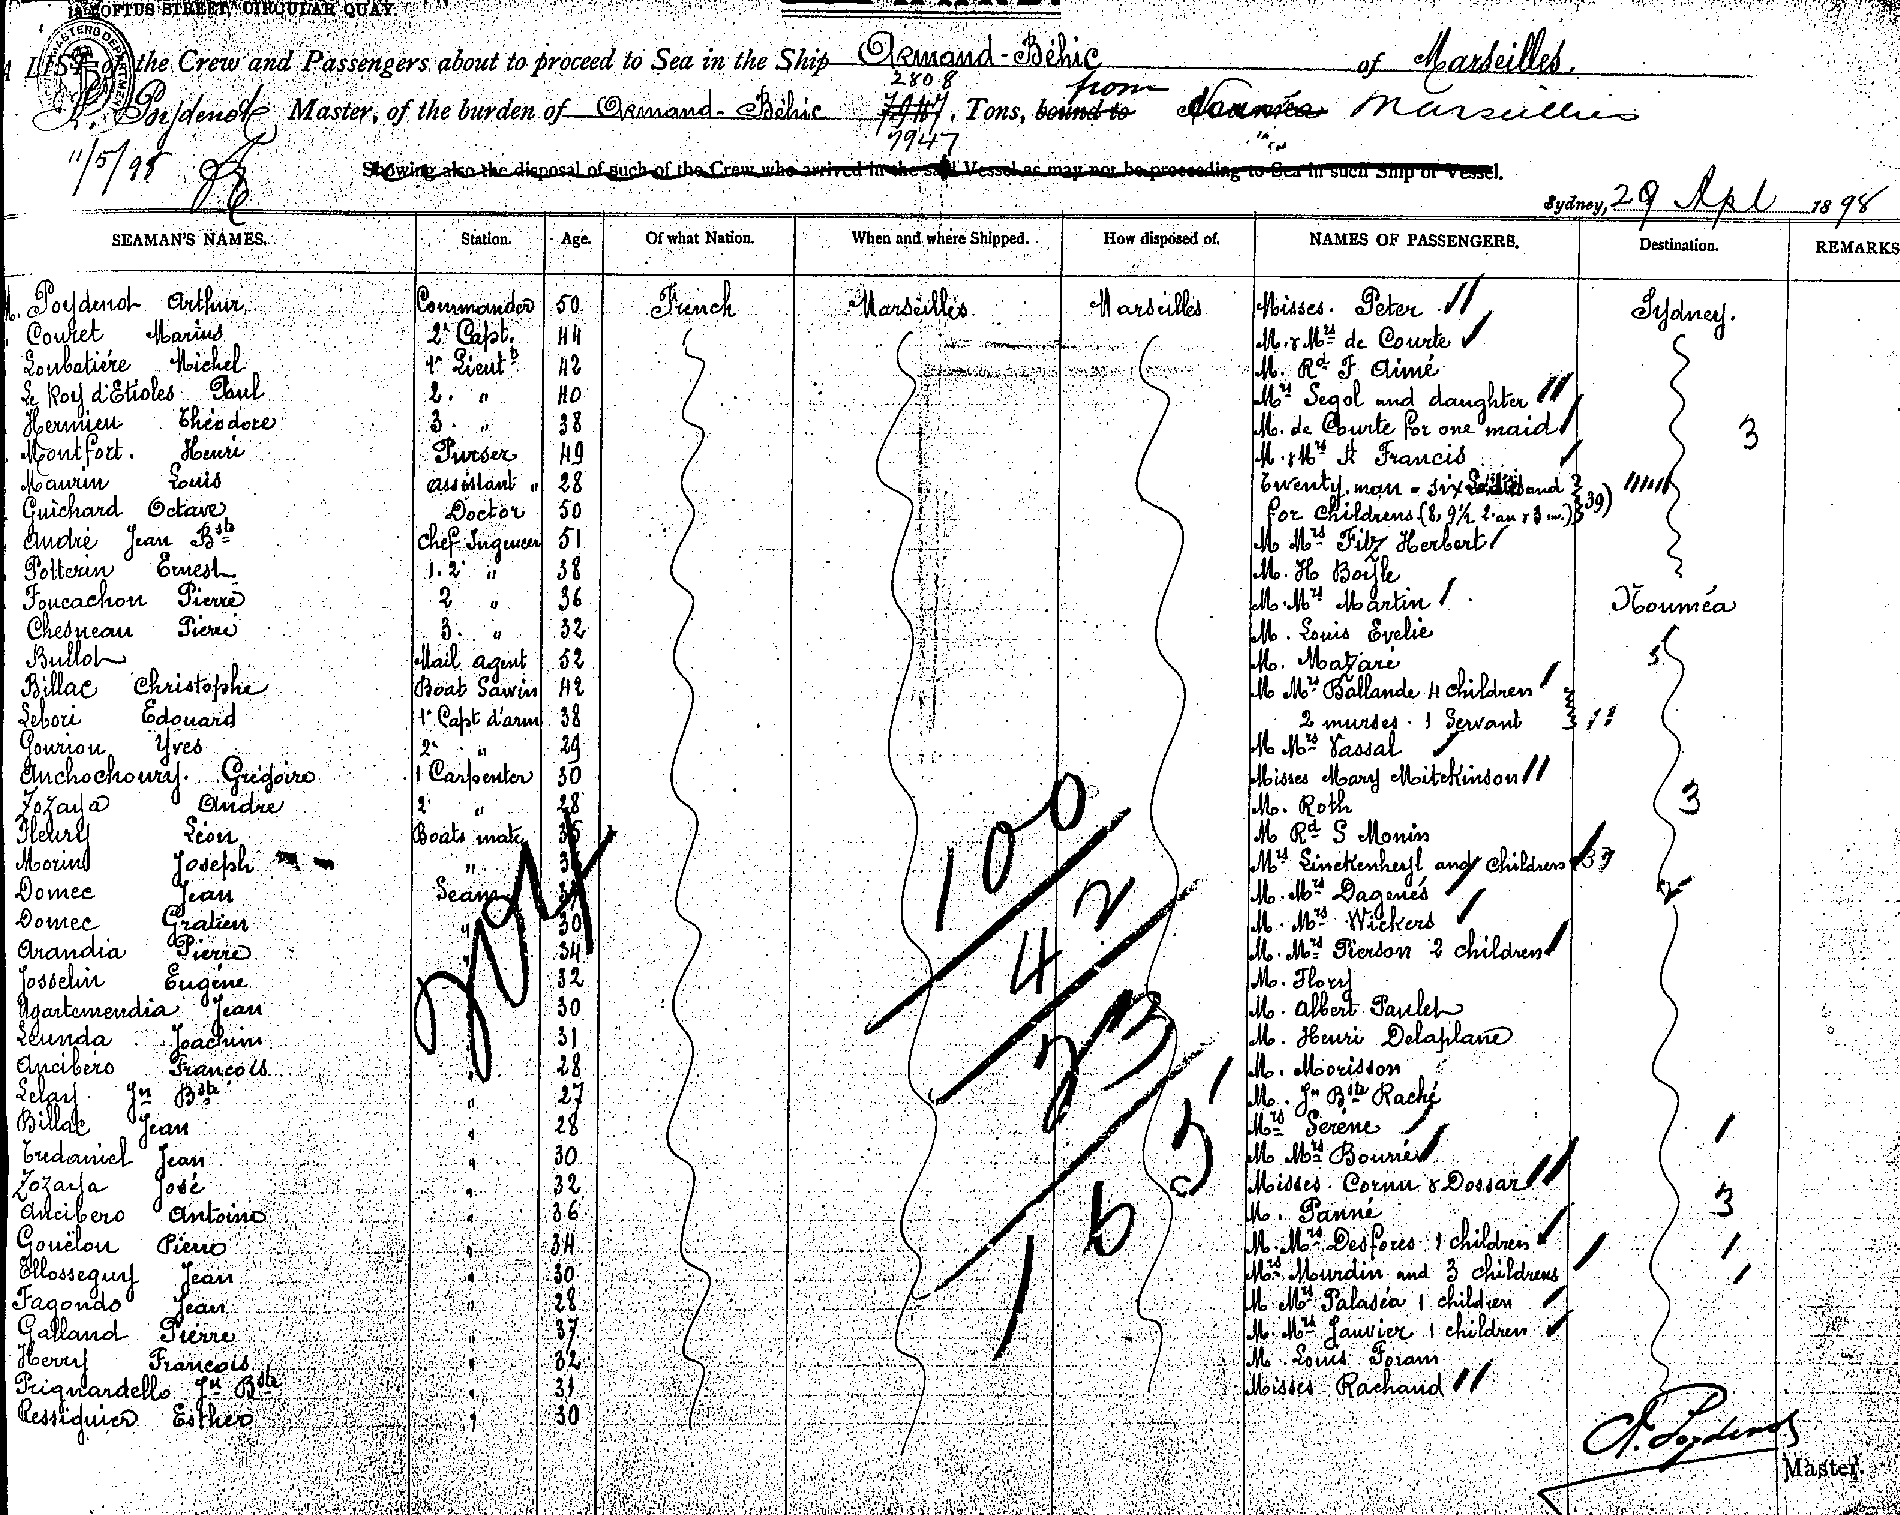 LOFTUS STREET, CIRCULAR QUAY.
A LIST of the Crew and Passengers about to proceed to Sea in the Ship Armand-Béhic of Marseilles.
A. Poydenot Master, of the burden of Armand-Béhic 2808 7947 Tons, bound to from Nouméa Marseilles
7947
11/5/98
Showing also the disposal of such of the Crew who arrived in the said Vessel as may not be proceeding to Sea in such Ship or Vessel.
Sydney, 29 Apl 1898
SEAMAN'S NAMES. Station. Age. Of what Nation. When and where Shipped. How disposed of. NAMES OF PASSENGERS. Destination. REMARKS
Poydenot Arthur Commander 50 French Marseilles Marseilles Misses. Peter Sydney.
Couret Marius 2d Capt. 44 M. & Mrs de Courte
Loubatière Michel 1r Lieut 42 M. Rd F Aimé
Le Roy d'Etioles Paul 2. " 40 Mrs Segol and daughter
Hermieu Théodore 3. " 38 M. de Courte for one maid 3
Montfort. Henri Purser 49 M. & Mrs St Francis
Maurin Louis assistant " 28 Twenty man - six and
Guichard Octave Doctor 50 for childrens (8, 9½ 2 an & 3 m.) 39)
André Jean Bste Chef Ingeneer 51 M Mrs Fitz Herbert
Potterin Ernest 1. 2d " 38 M. H Boyle
Foucachon Pierre 2 " 36 M. Mrs Martin Nouméa
Chesneau Pierre 3. " 32 M. Louis Evelie
Bullot Mail agent 52 M. Mazaré 5
Billac Christophe Boat Sawin 42 M Mrs Ballande 4 children
Lebori Edouard 1r Capt d'arm 38 2 nurses. 1 Servant
Gouriou Yves 2d " 29 M Mrs Vassal
Anchochoury. Grégoire 1 Carpenter 30 Misses Mary Mitckinson
Zozaya Andre 2 " 28 M. Roth 3
Fleury Léon Boats mate 35 M Rd G Monin
Morin Joseph " Mrs Linckenheyl and children
Domec Jean Seam M. Mrs Dagenés
Domec Gratien " 30 M. Mrs Wickers
Arandia Pierre 34 M. Mrs Pierson 2 children
Josselin Eugène 32 M. Flory
Agartemendia Jean 30 M. Albert Paulet
Leunda Joachim 31 M. Henri Delaplane
Ancibero François " 28 M. Morisson
Lelay Jn Bste " 27 M. Jn Bste Raché
Billac Jean " 28 Mrs Serène
Tredaniel Jean " 30 M Mrs Bourié
Zozaya José " 32 Misses. Cornu & Dossar
Ancibero Antoine " 36 M. Panné 3
Gouëlou Pierre " 34 M. Mrs Desfores 1 children
Ellosseguy Jean " 30 Mrs Murdin and 3 childrens
Fagondo Jean " 28 M Mrs Palaséa 1 children
Galland Pierre " 37 M. Mrs Janvier 1 children
Herry François " 32 M. Louis Foram
Prignardello Jn Bste " 31 Misses Rachaud
Ressiguier Esther " 30
100
42
23
165
A. Poydenot
Master.